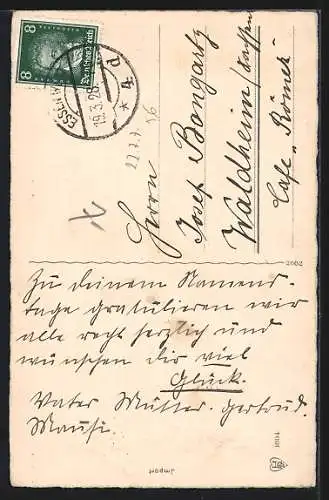 8 8
Deutsches Reich
ESSEN
19.3.28
* 4 d
Herrn
Josef Bongartz
Waldheim
Cafe „Römer"
2002
Zu deinem Namens-
tage gratulieren wir
alle recht herzlich und
wünschen dir viel
Glück.
Vater Mutter. Gertrud.
Mausi.
Import